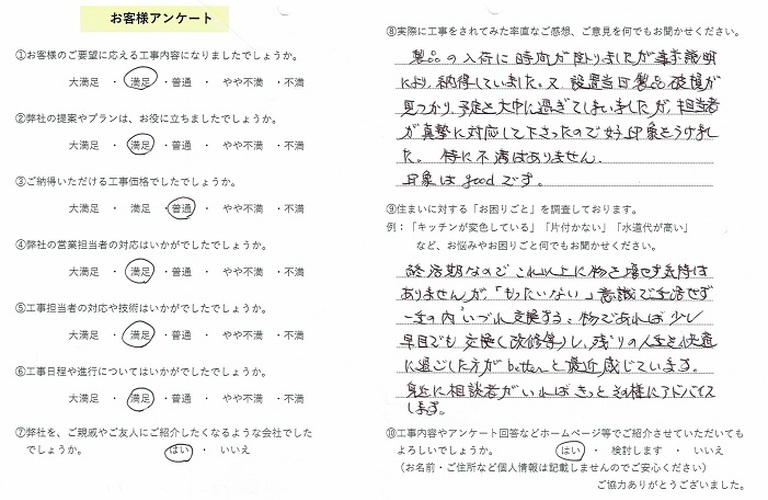 お客様アンケート
①お客様のご要望に応える工事内容になりましたでしょうか。
大満足 ・ 満足 ・普通 ・ やや不満 ・不満
②弊社の提案やプランは、お役に立ちましたでしょうか。
大満足 ・ 満足 ・普通 ・ やや不満 ・不満
③ご納得いただける工事価格でしたでしょうか。
大満足 ・ 満足 ・普通 ・ やや不満 ・不満
④弊社の営業担当者の対応はいかがでしたでしょうか。
大満足 ・ 満足 ・普通 ・ やや不満 ・不満
⑤工事担当者の対応や技術はいかがでしたでしょうか。
大満足 ・ 満足 ・普通 ・ やや不満 ・不満
⑥工事日程や進行についてはいかがでしたでしょうか。
大満足 ・ 満足 ・普通 ・ やや不満 ・不満
⑦弊社を、ご親戚やご友人にご紹介したくなるような会社でした
でしょうか。 はい ・ いいえ
⑧実際に工事をされてみた率直なご感想、ご意見を何でもお聞かせください。
製品の入荷に時間が掛りましたが事前説明
により、納得していました。又、設置当日製品破損が
見つかり、予定を大巾に過ぎてしまいましたが、担当者
が真摯に対応して下さったので好印象をうけまし
た。 特に不満はありません.
印象は goodです。
⑨住まいに対する「お困りごと」を調査しております。
例：「キッチンが変色している」「片付かない」「水道代が高い」
など、お悩みやお困りごと何でもお聞かせください。
終活期なのでこれ以上に物を増やす気持は
ありませんが、「もったいない」意識で生活せず
一生の内いづれ交換する、物であれば少し
早目でも交換(改修等)し、残りの人生を快適
に過ごした方がbetterと最近感じています。
身近に相談者がいればきっとその様にアドバイス
します。
⑩工事内容やアンケート回答などホームページ等でご紹介させていただいても
よろしいでしょうか。 はい ・ 検討します ・ いいえ
（お名前・ご住所など個人情報は記載しませんのでご安心ください）
ご協力ありがとうございました。